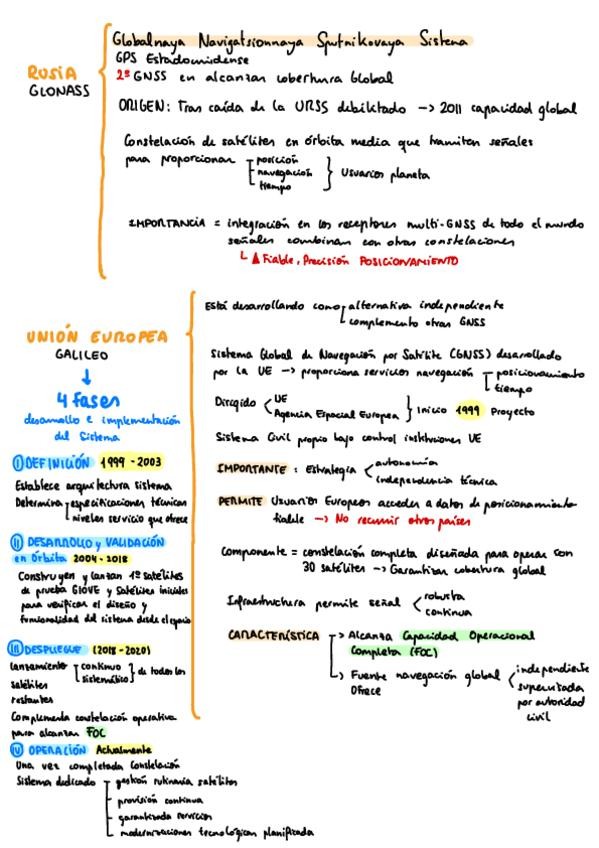 RUSIA
GLONASS
Globalnaya Navigatsionnaya Sputnikovaya Sistema
GPS Estadounidense
2º GNSS en alcanzar cobertura Global
ORIGEN: Tras caída de la URSS debilitado -> 2011 capacidad global
Constelación de satélites en órbita media que tramiten señales
para proporcionar
posición
navegación
tiempo
Usuarios planeta
IMPORTANCIA = integración en los receptores multi-GNSS de todo el mundo
señales combinan con otras constelaciones
Fiable, Precisión POSICIONAMIENTO
UNIÓN EUROPEA
GALILEO
4 fases
desarrollo e implementación
del Sistema
I DEFINICIÓN 1999-2003
Establece arquitectura sistema
Determina
especificaciones técnicas
niveles servicio que ofrece
II DESARROLLO y VALIDACIÓN
en Órbita 2004-2018
Construyen y lanzan 1º satélites
de prueba GIOVE y Satélites iniciales
para verificar el diseño y
funcionalidad del sistema desde el espacio
III DESPLIEGUE (2018-2020)
lanzamiento
continuo
sistemático
de todos los
satélites
restantes
Complementa constelación operativa
para alcanzar FOC
IV OPERACIÓN Actualmente
Una vez completada Constelación
Sistema dedicado
gestión rutinaria satélites
provisión continua
garantizada servicios
modernizaciones tecnológicas planificada
Está desarrollando como
alternativa independiente
complemento otras GNSS
Sistema Global de Navegación por Satélite (GNSS) desarrollado
por la UE -> proporciona servicios navegación
posicionamiento
tiempo
Dirigido
UE
Agencia Espacial Europea
Inicio 1999 Proyecto
Sistema Civil propio bajo control instituciones UE
IMPORTANTE : Estrategia
autonomía
independencia técnica
PERMITE Usuarios Europeos acceder a datos de posicionamiento
fiable -> No recurrir otros países
Componente = constelación completa diseñada para operar con
30 satélites -> Garantizar cobertura global
Infraestructura permite señal
robusta
continua
CARACTERÍSTICA
-> Alcanza Capacidad Operacional
Completa (FOC)
-> Fuente navegación global
Ofrece
independiente
supervisada
por autoridad
civil